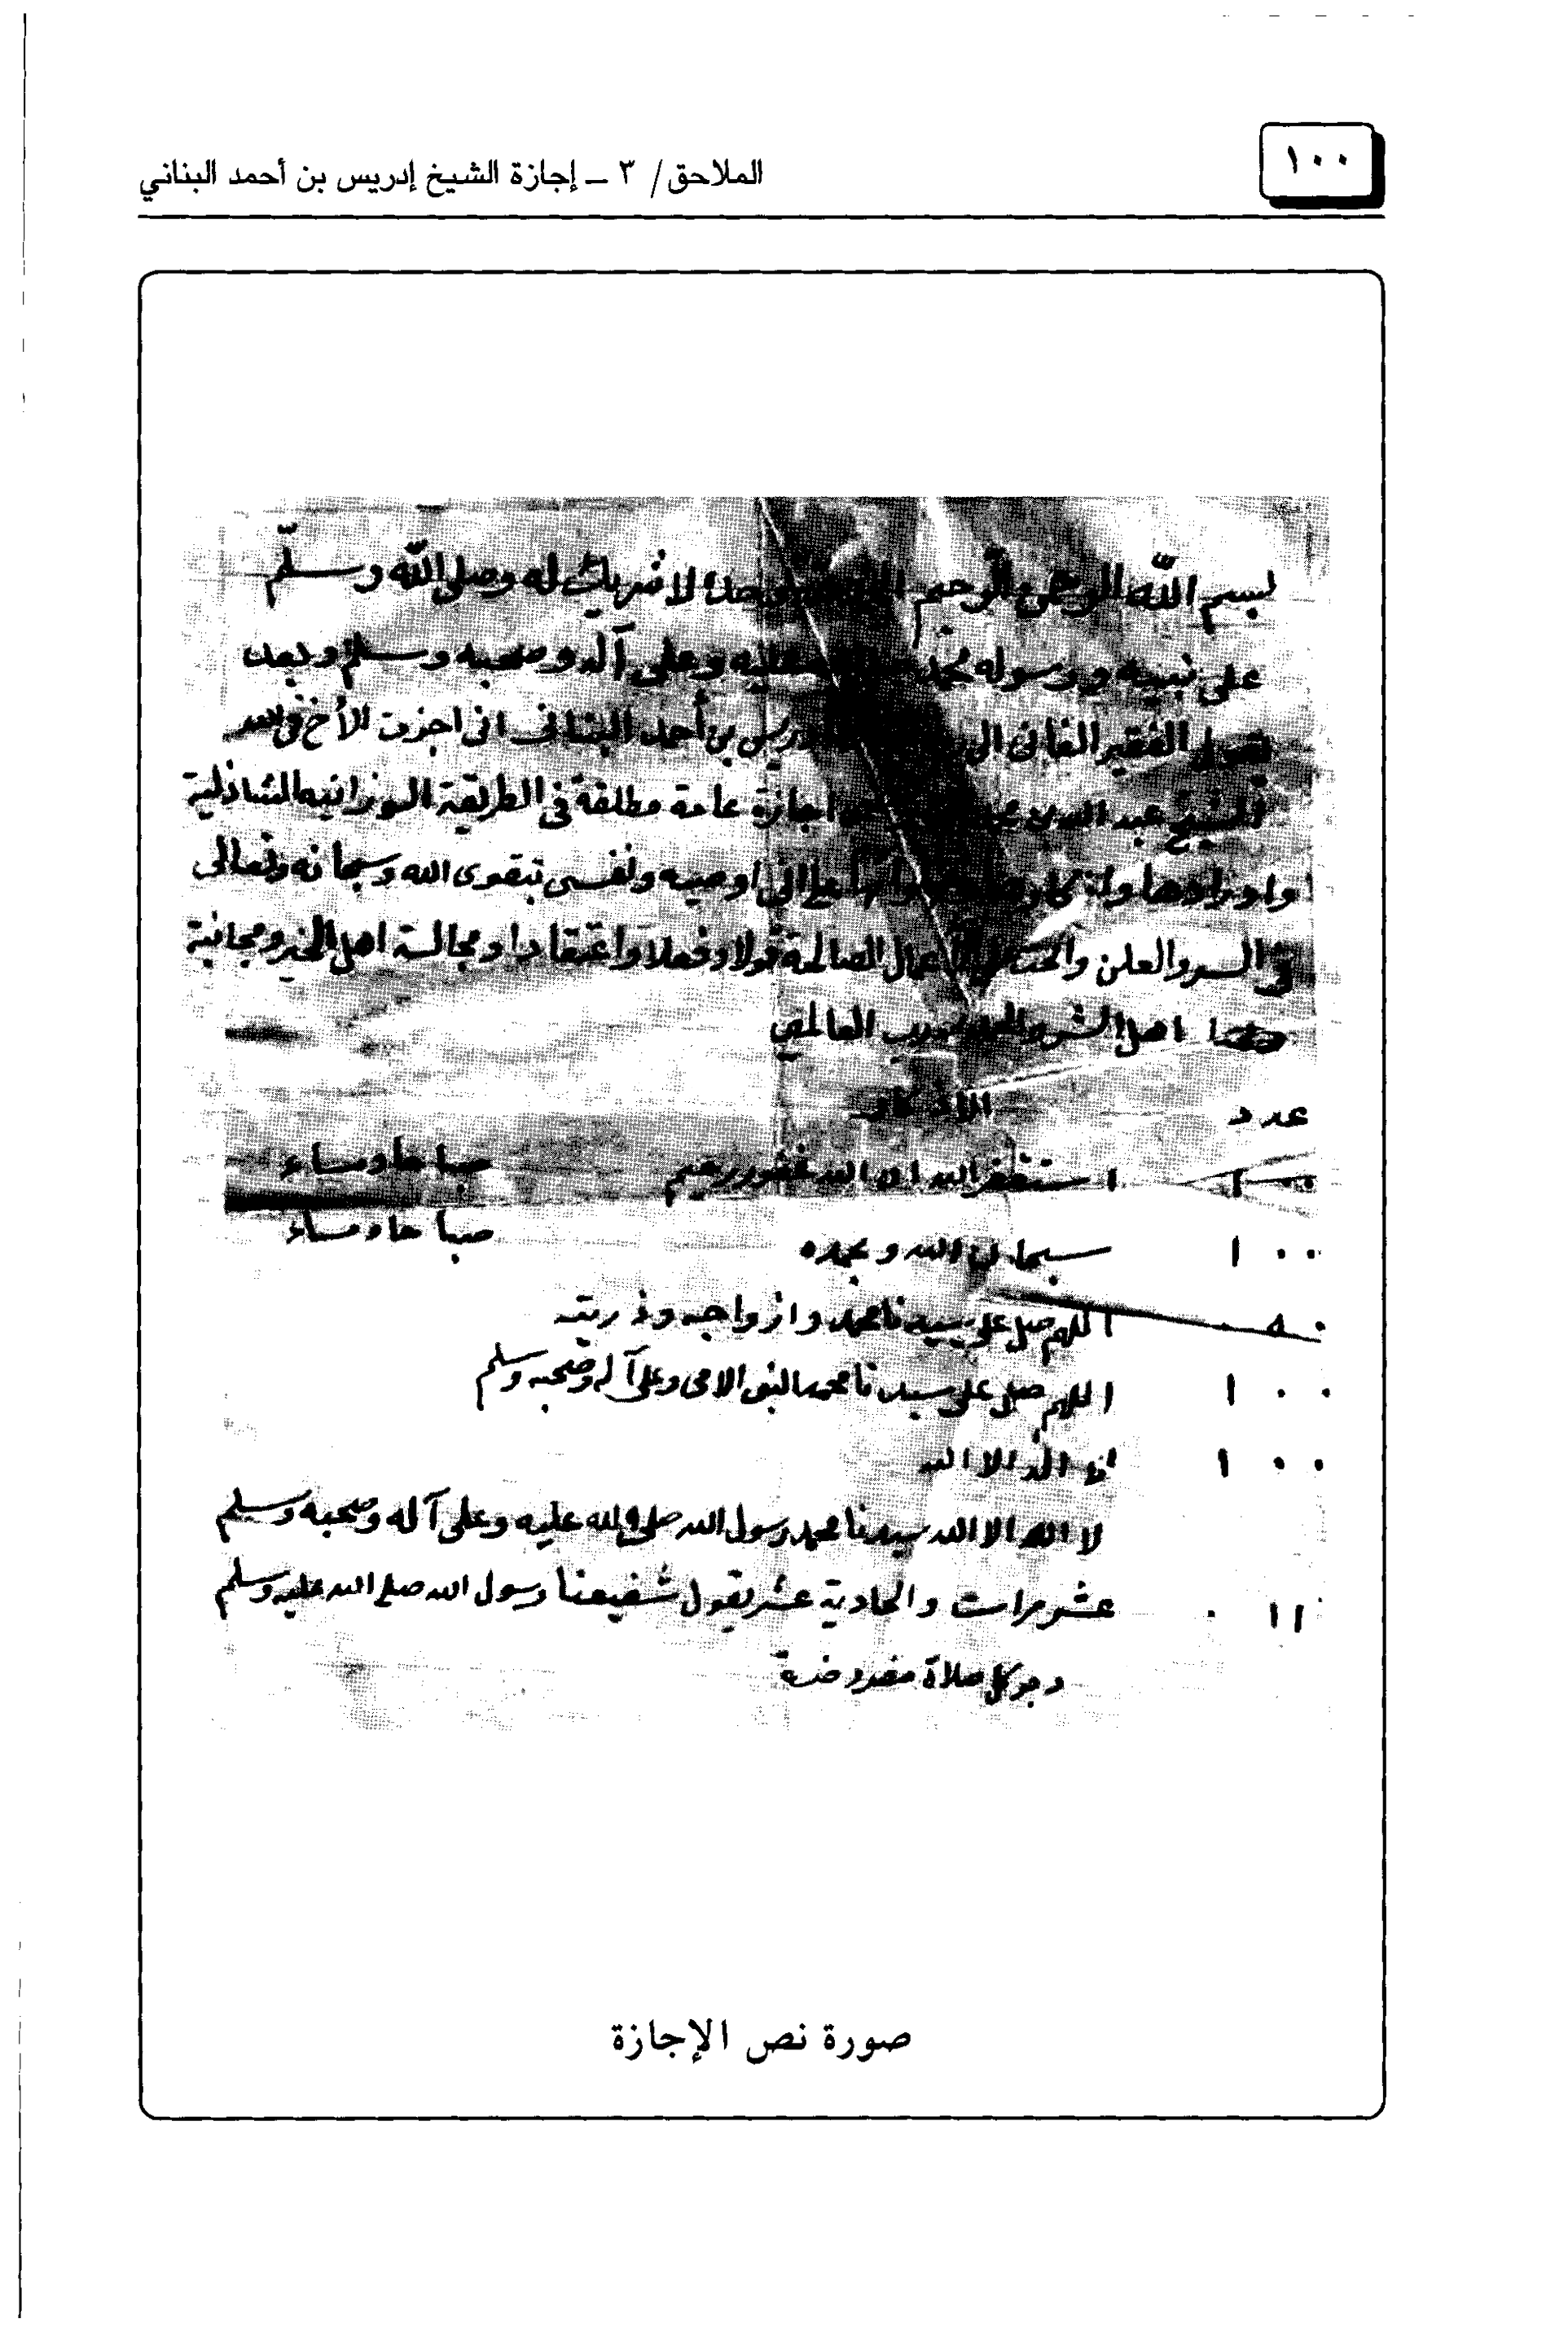 ١٠٠
الملاحق/ ٣ ــ إجازة الشيخ إدريس بن أحمد البناني
بسم الله الرحمن الرحيم وحده لا شريك له وصلى الله وسلم
على نبيه ورسوله محمد عليه وعلى آله وصحبه وسلم وبعد
يقول الفقير الفانى الى ادريس بن أحمد البنانى انى اجزت الأخ فى الله
الشيخ عبد الله بن اجازة عامة مطلقة فى الطريقة الوزانية الشاذلية
واورادها أوصيه ونفسى بتقوى الله سبحانه وتعالى
فى السر والعلن والحث على الأعمال الصالحة قولا وفعلا واعتقادا ومجالسة اهل الخير ومجانبة
اهل الشر والحمد لله رب العالمين
عدد الأذكار
١٠٠ استغفر الله ان الله غفور رحيم صباحا ومساء
١٠٠ سبحان الله وبحمده صباحا ومساء
٥٠ اللهم صل على سيدنا محمد وازواجه وذريته
١٠٠ اللهم صل على سيدنا محمد النبى الامى وعلى آله وصحبه وسلم
١٠٠ لا اله الا الله
لا اله الا الله سيدنا محمد رسول الله صلى الله عليه وعلى آله وصحبه وسلم
١١ عشر مرات والحادية عشر يقول شفيعنا رسول الله صلى الله عليه وسلم
دبر كل صلاة مفروضة
صورة نص الإجازة